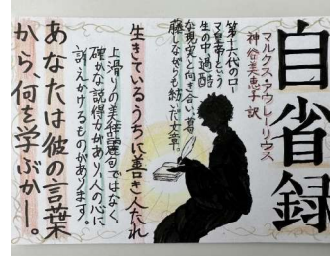 自省録
マルクス・アウレーリウス
神谷美恵子訳
第十六代のロー
マ皇帝という
生の中、過酷
な現実と向き合い、葛
藤しながらも紡いだ文章。
生きているうちに善き人たれ
上滑りの美辞麗句ではなく、
確かな説得力があり、人の心に
訴えかけるものがあります。
あなたは彼の言葉
から、何を学ぶか―。